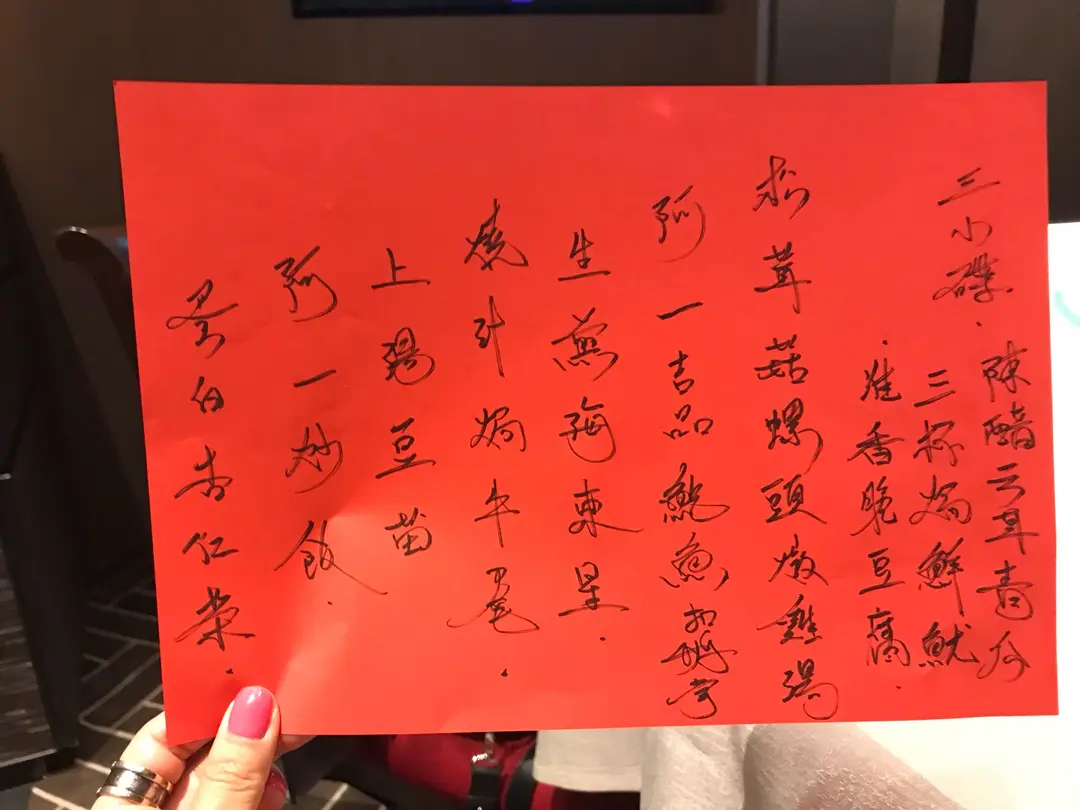 三小碟．陳醋云耳青瓜
三杯焗鮮魷
．淮香脆豆腐．
松茸菇螺頭燉雞湯
阿一吉品鮑魚扣鵝掌
生煎海東星．
燒汁焗牛尾．
上湯豆苗
阿一炒飯．
蛋白杏仁茶．